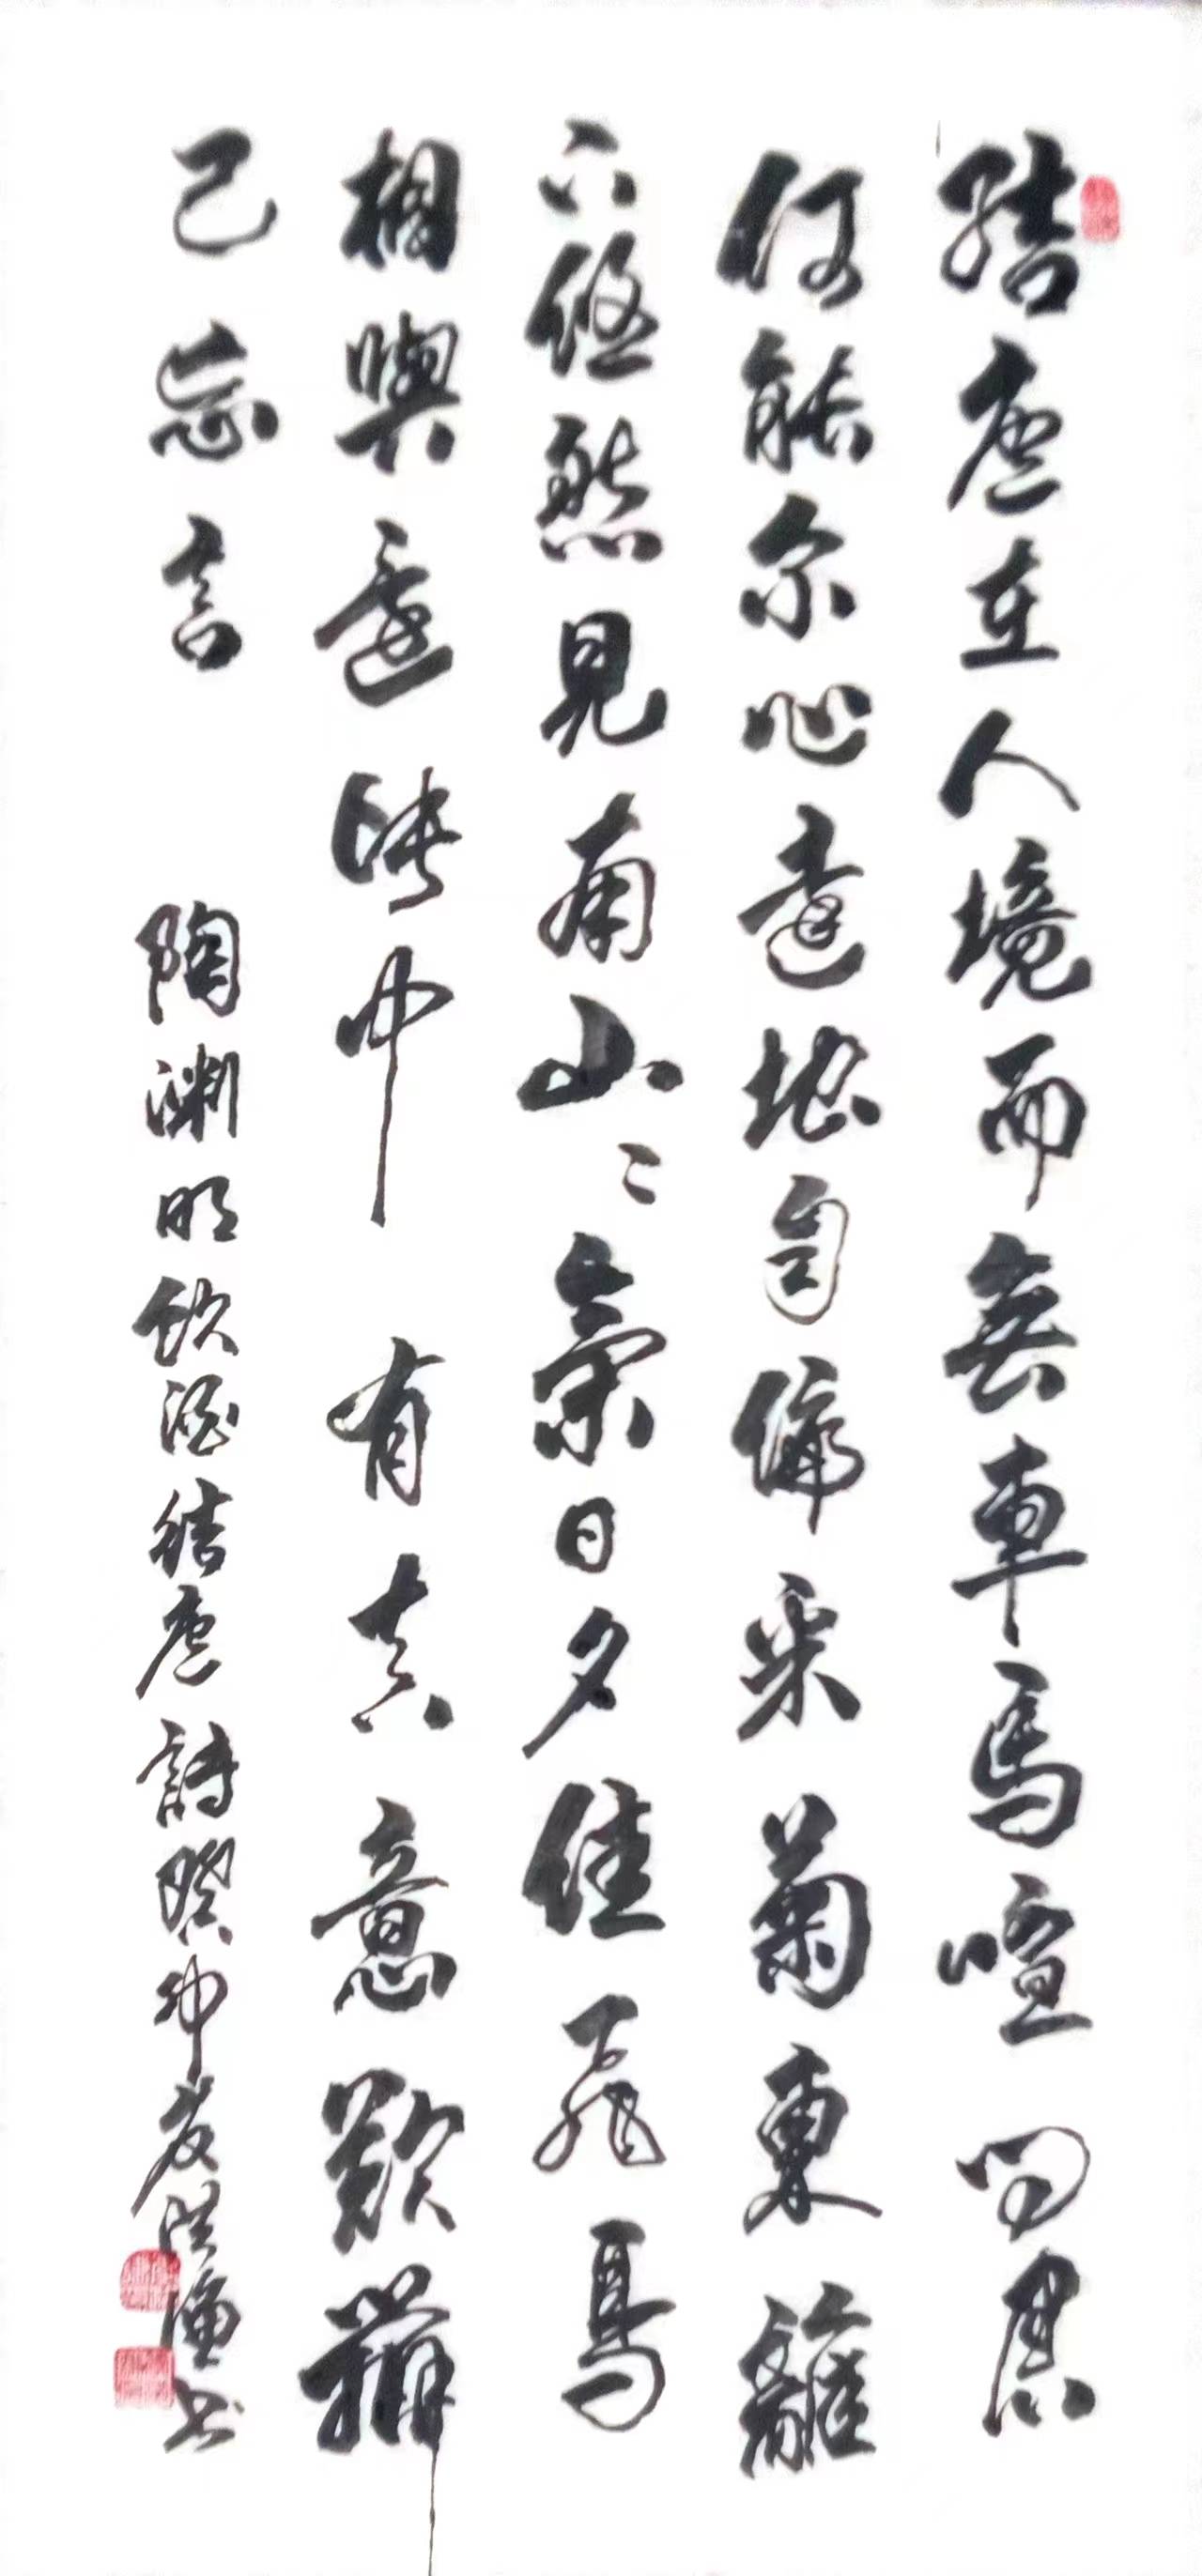 結廬在人境而無車馬喧問君
何能尔心遠地自偏采菊東籬
下悠然見南山々氣日夕佳飛鳥
相與還此中有真意欲辯
已忘言
陶淵明飲酒結廬詩癸卯夏